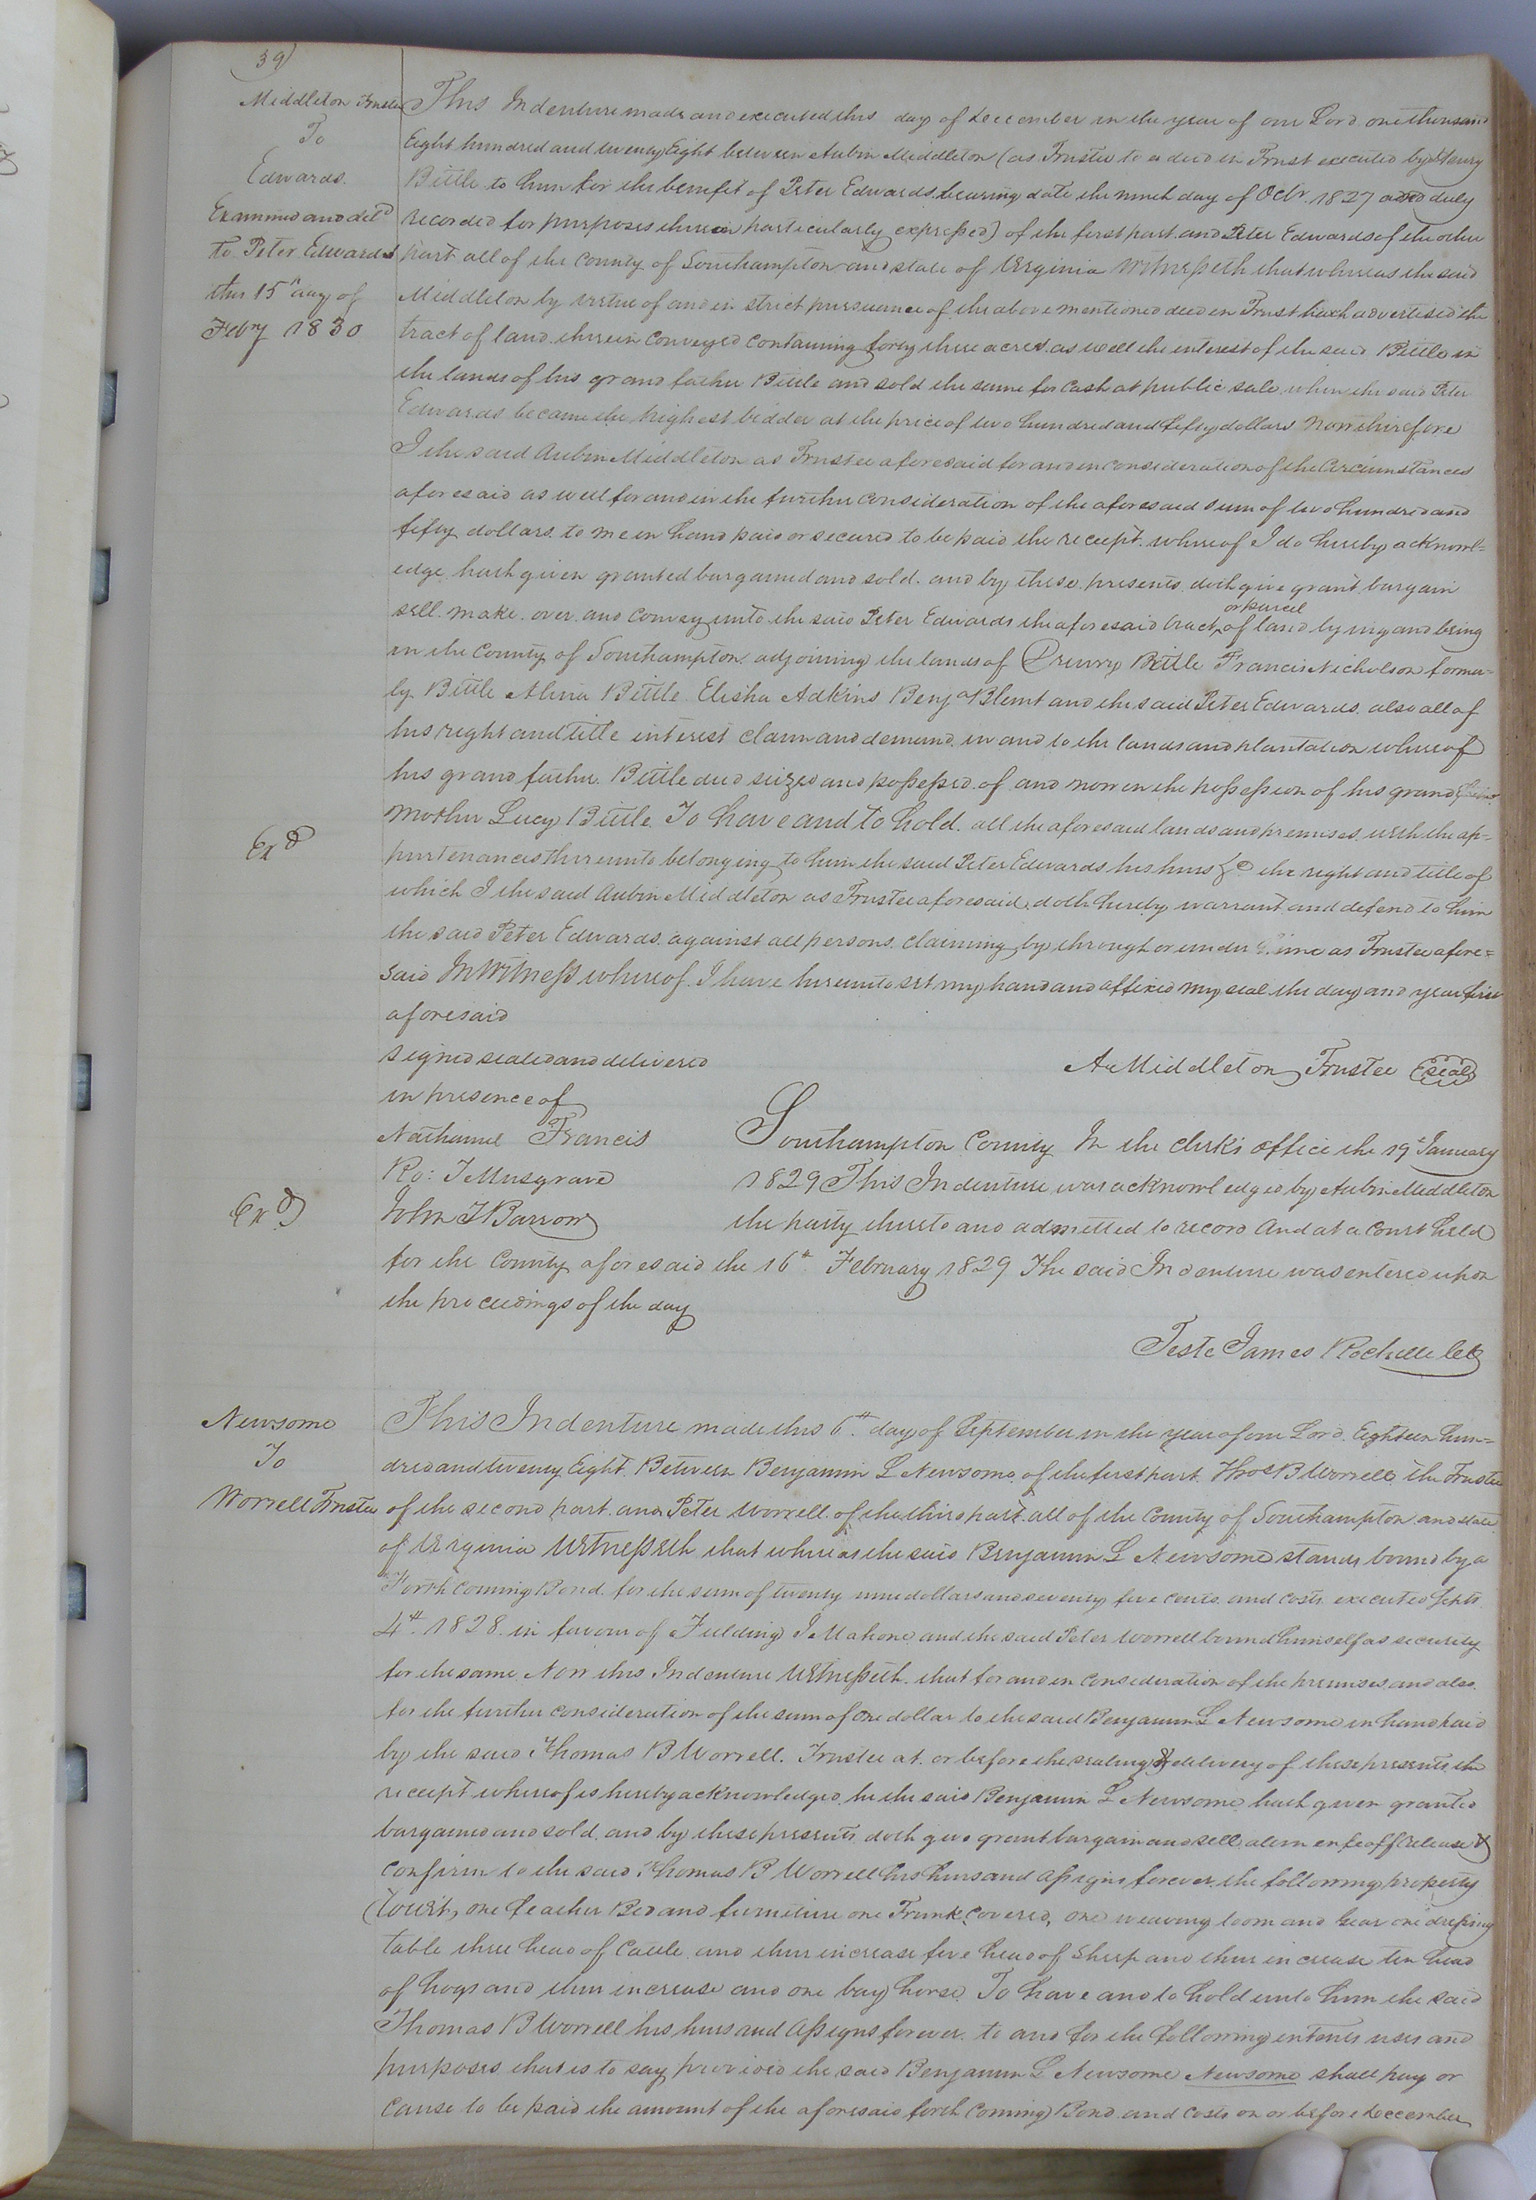 39)
Middleton Trustee
To
Edwards.
Examined and deld
to Peter Edwards
this 15th day of
Feby 1830
This Indenture made and executed this day of December in the year of our Lord one thousand
Eight hundred and twenty Eight between Aubin Middleton (as Trustee to a deed in Trust executed by Henry
Bittle to him for the benefit of Peter Edwards bearing date the ninth day of Octr. 1827 and duly
recorded for purposes therein particularly expressed) of the first part and Peter Edwards of the other
part all of the County of Southampton and state of Virginia Witnesseth that whereas the said
Middleton by virtue of and in strict pursuance of the above mentioned deed in Trust hath advertised the
tract of land therein Conveyed Containing forty three acres as well the interest of the said Bittle in
the lands of his grand father Bittle and sold the same for Cash at public sale when the said Peter
Edwards became the highest bidder at the price of two hundred and fifty dollars Now therefore
I the said Aubin Middleton as Trustee aforesaid for and in consideration of the Circumstances
aforesaid as well for and in the further Consideration of the aforesaid sum of two hundred and
fifty dollars to me in hand paid or secured to be paid the receipt whereof I do hereby acknowl=
edge hath given granted bargained and sold. and by these presents doth give grant bargain
sell. make. over and Convey unto the said Peter Edwards the aforesaid tract or parcel of land lying and being
in the County of Southampton adjoining the lands of Drewry Bittle Francis Nicholson former=
ly Bittle Alvira Bittle Elisha Adkins Benja Blunt and the said Peter Edwards also all of
his right and title interest claim and demand in and to the lands and plantation whereof
his grand father Bittle died seized and possessed of and now in the possession of his grand
Mother Lucy Bittle. To have and to hold all the aforesaid lands and premises with the ap=
purtenances thereunto belonging to him the said Peter Edwards his heirs &c the right and title of
which I the said Aubin Middleton as Trustee aforesaid doth hereby warrant and defend to him
the said Peter Edwards against all persons claiming by through or under me as Trustee afore=
said In Witness whereof I have hereunto set my hand and affixed my seal the day and year first
aforesaid
Exd
signed sealed and delivered
in presence of
Nathaniel Francis
Ro: T Musgrave
John T Barrow
A Middleton Trustee (seal)
Exd
Southampton County In the clerks office the 19th January
1829 This Indenture was acknowledged by Aubin Middleton
the party thereto and admitted to record And at a Court held
for the County aforesaid the 16th February 1829 The said Indenture was entered upon
the proceedings of the day
Teste James Rochelle Clk
Newsome
To
Worrell Trustee
This Indenture made this 6th day of September in the year of our Lord Eighteen hun=
dred and twenty Eight Between Benjamin L Newsome of the first part Thos B Worrell the Trustee
of the second part and Peter Worrell of the third part all of the County of Southampton and state
of Virginia Witnesseth that whereas the said Benjamin L Newsome stands bound by a
Forth coming Bond for the sum of twenty nine dollars and seventy five cents and costs executed Septr
4th 1828 in favour of Fielding J Mahone and the said Peter Worrell bound himself as security
for the same Now this Indenture Witnesseth that for and in consideration of the premises and also
for the further consideration of the sum of One dollar to the said Benjamin L Newsome in hand paid
by the said Thomas B Worrell. Trustee at or before the sealing & delivery of these presents the
receipt whereof is hereby acknowledged he the said Benjamin L Newsome hath given granted
bargained and sold and by these presents doth give grant bargain and sell alien enfeoff release &
Confirm to the said Thomas B Worrell his heirs and Assigns forever the following property
(Towit) one feather Bed and furniture one Trunk Covered, one weaving loom and Gear one dressing
table three head of Cattle and their increase five head of Sheep and their increase ten head
of hogs and their increase and one bay horse To have and to hold unto him the said
Thomas B Worrell his heirs and Assigns forever. to and for the following intents uses and
purposes that is to say provided the said Benjamin L Newsome Newsome shall pay or
Cause to be paid the amount of the aforesaid forth Coming Bond and Costs on or before December